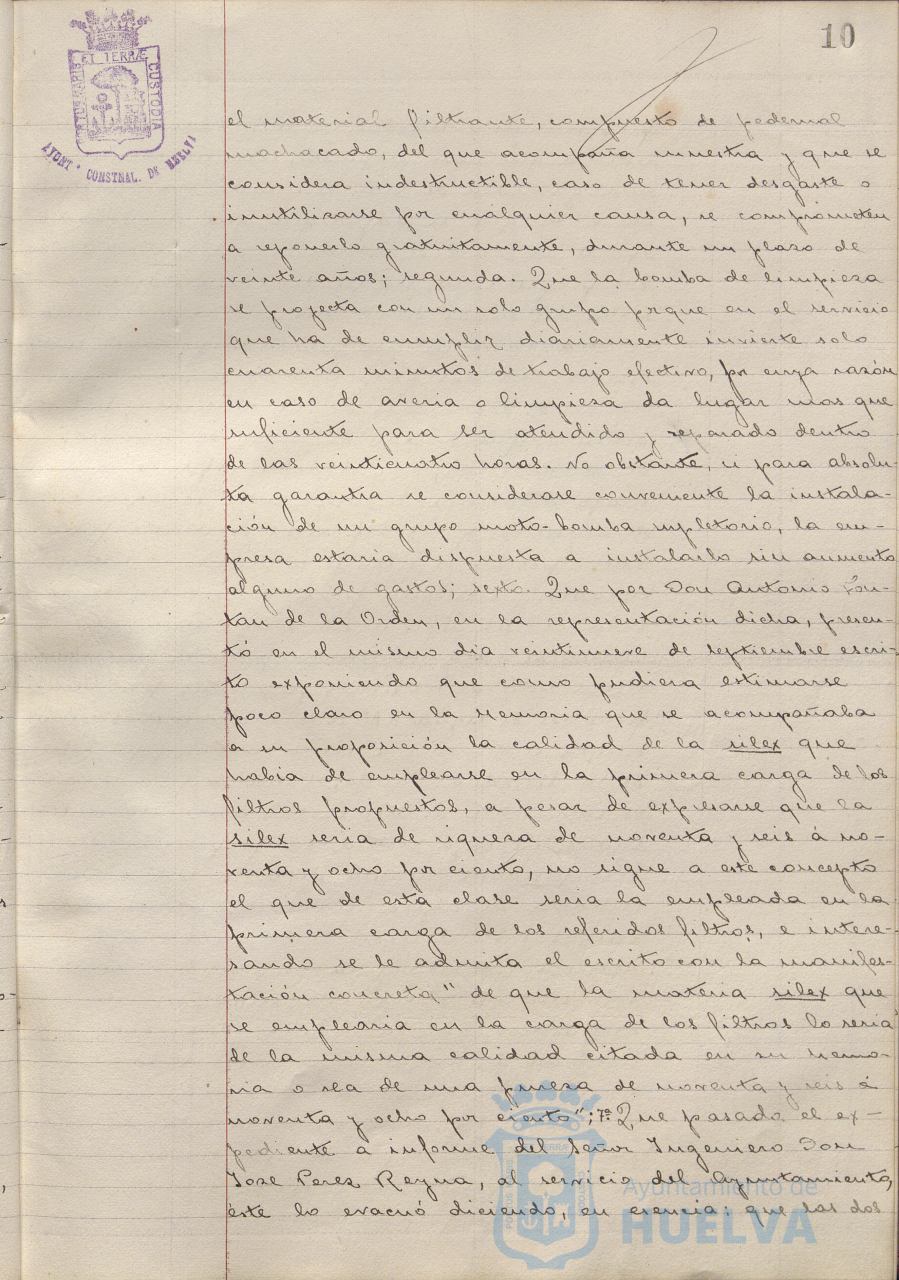 10
PORTUS MARIS ET TERRÆ CUSTODIA
AYUNT. CONSTNAL. DE HUELVA
el material filtrante, compuesto de pedernal
machacado, del que acompaña muestra y que se
considera indestructible, caso de tener desgaste o
inutilizarse por cualquier causa, se comprometen
a reponerlo gratuitamente, durante un plazo de
veinte años; segunda. Que la bomba de limpieza
se proyecta con un solo grupo porque en el servicio
que ha de cumplir diariamente invierte solo
cuarenta minutos de trabajo efectivo, por cuya razón
en caso de averia o limpieza da lugar mas que
suficiente para ser atendido y reparado dentro
de las veinticuatro horas. No obstante, si para absolu-
ta garantia se considerase conveniente la instala-
ción de un grupo moto-bomba supletorio, la em-
presa estaria dispuesta a instalarlo sin aumento
alguno de gastos; sexto. Que por Don Antonio Fon-
tan de la Orden, en la representación dicha, presen-
tó en el mismo dia veintinueve de septiembre escri-
to exponiendo que como pudiera estimarse
poco claro en la Memoria que se acompañaba
a su proposición la calidad de la silex que
habia de emplearse en la primera carga de los
filtros propuestos, a pesar de expresarse que la
silex seria de riqueza de noventa y seis á no-
venta y ocho por ciento, no sigue a este concepto
el que de esta clase seria la empleada en la
primera carga de los referidos filtros, e intere-
sando se le admita el escrito con la manifes-
tación concreta "de que la materia silex que
se emplearia en la carga de los filtros lo seria
de la misma calidad citada en su Memo-
ria o sea de una pureza de noventa y seis á
noventa y ocho por ciento"; 7ª Que pasado el ex-
pediente a informe del Señor Ingeniero Don
Jose Perez Reyna, al servicio del Ayuntamiento,
este lo evacuó diciendo, en esencia: que las dos
Ayuntamiento de
HUELVA